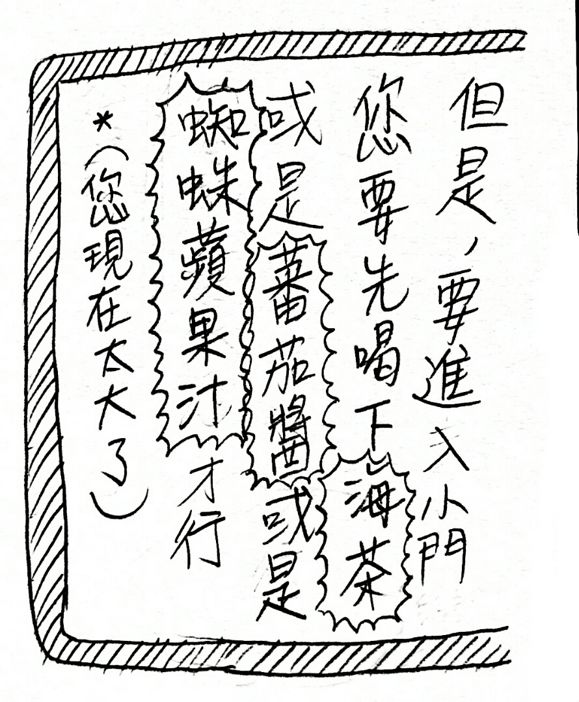 但是，要進入小門
您要先喝下海茶
或是蕃茄醬或是
蜘蛛蘋果汁才行
*（您現在太大了）